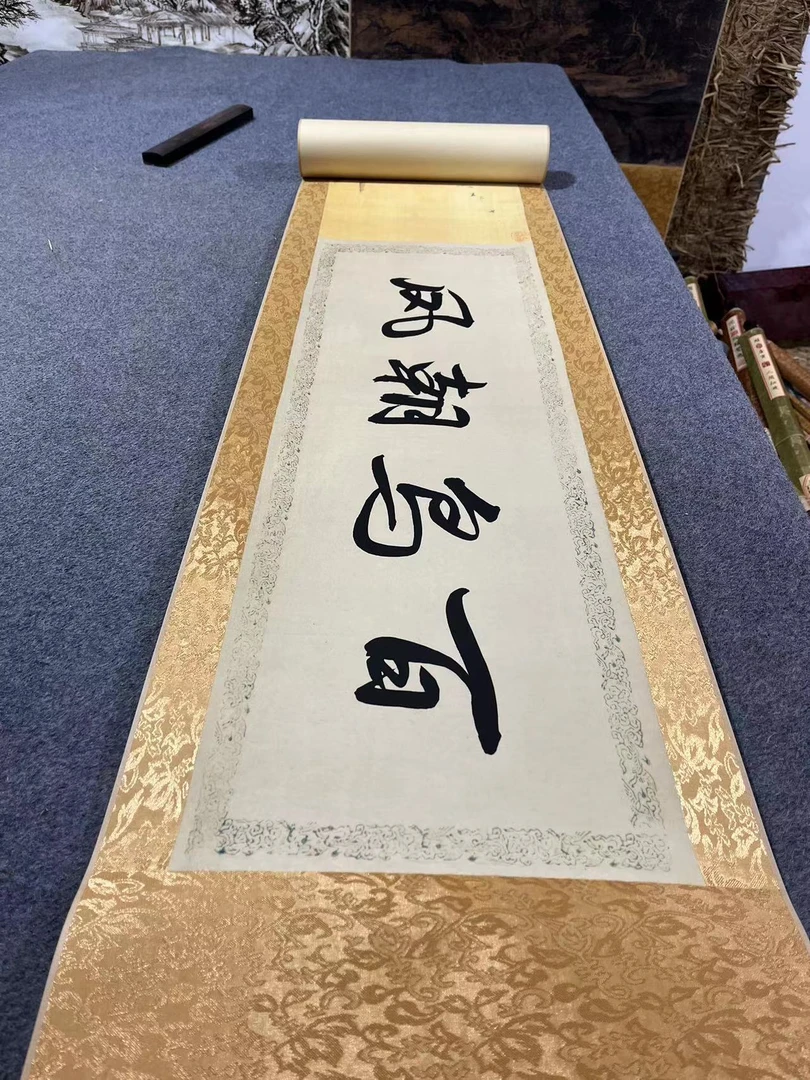 百鳥朝鳳